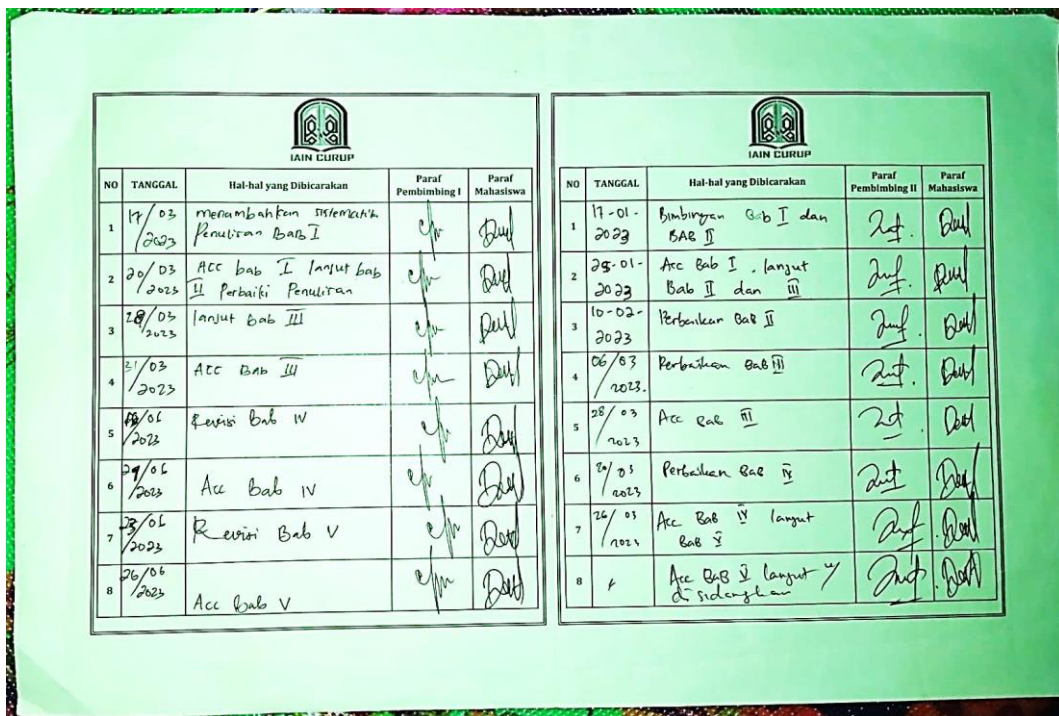 IAIN CURUP
NO TANGGAL Hal-hal yang Dibicarakan Paraf Pembimbing I Paraf Mahasiswa
1 17/03 2023 menambahkan sistematik
Penulisan Bab I
2 20/03 2023 Acc bab I lanjut bab
II Perbaiki Penulisan
3 28/03 2023 lanjut bab III
4 31/03 2023 Acc Bab III
5 /06 2023 Revisi Bab IV
6 /06 2023 Acc Bab IV
7 23/06 2023 Revisi Bab V
8 26/06 2023 Acc Bab V
IAIN CURUP
NO TANGGAL Hal-hal yang Dibicarakan Paraf Pembimbing II Paraf Mahasiswa
1 17-01-2023 Bimbingan Bab I dan
BAB II
2 -01-2023 Acc Bab I, lanjut
Bab II dan III
3 10-02-2023 Perbaikan Bab II
4 06/03 2023. Perbaikan Bab III
5 28/03 2023 Acc Bab III
6 /03 2023 Perbaikan Bab IV
7 26/03 2023 Acc Bab IV lanjut
Bab V
8 Acc Bab V lanjut u/
disidangkan